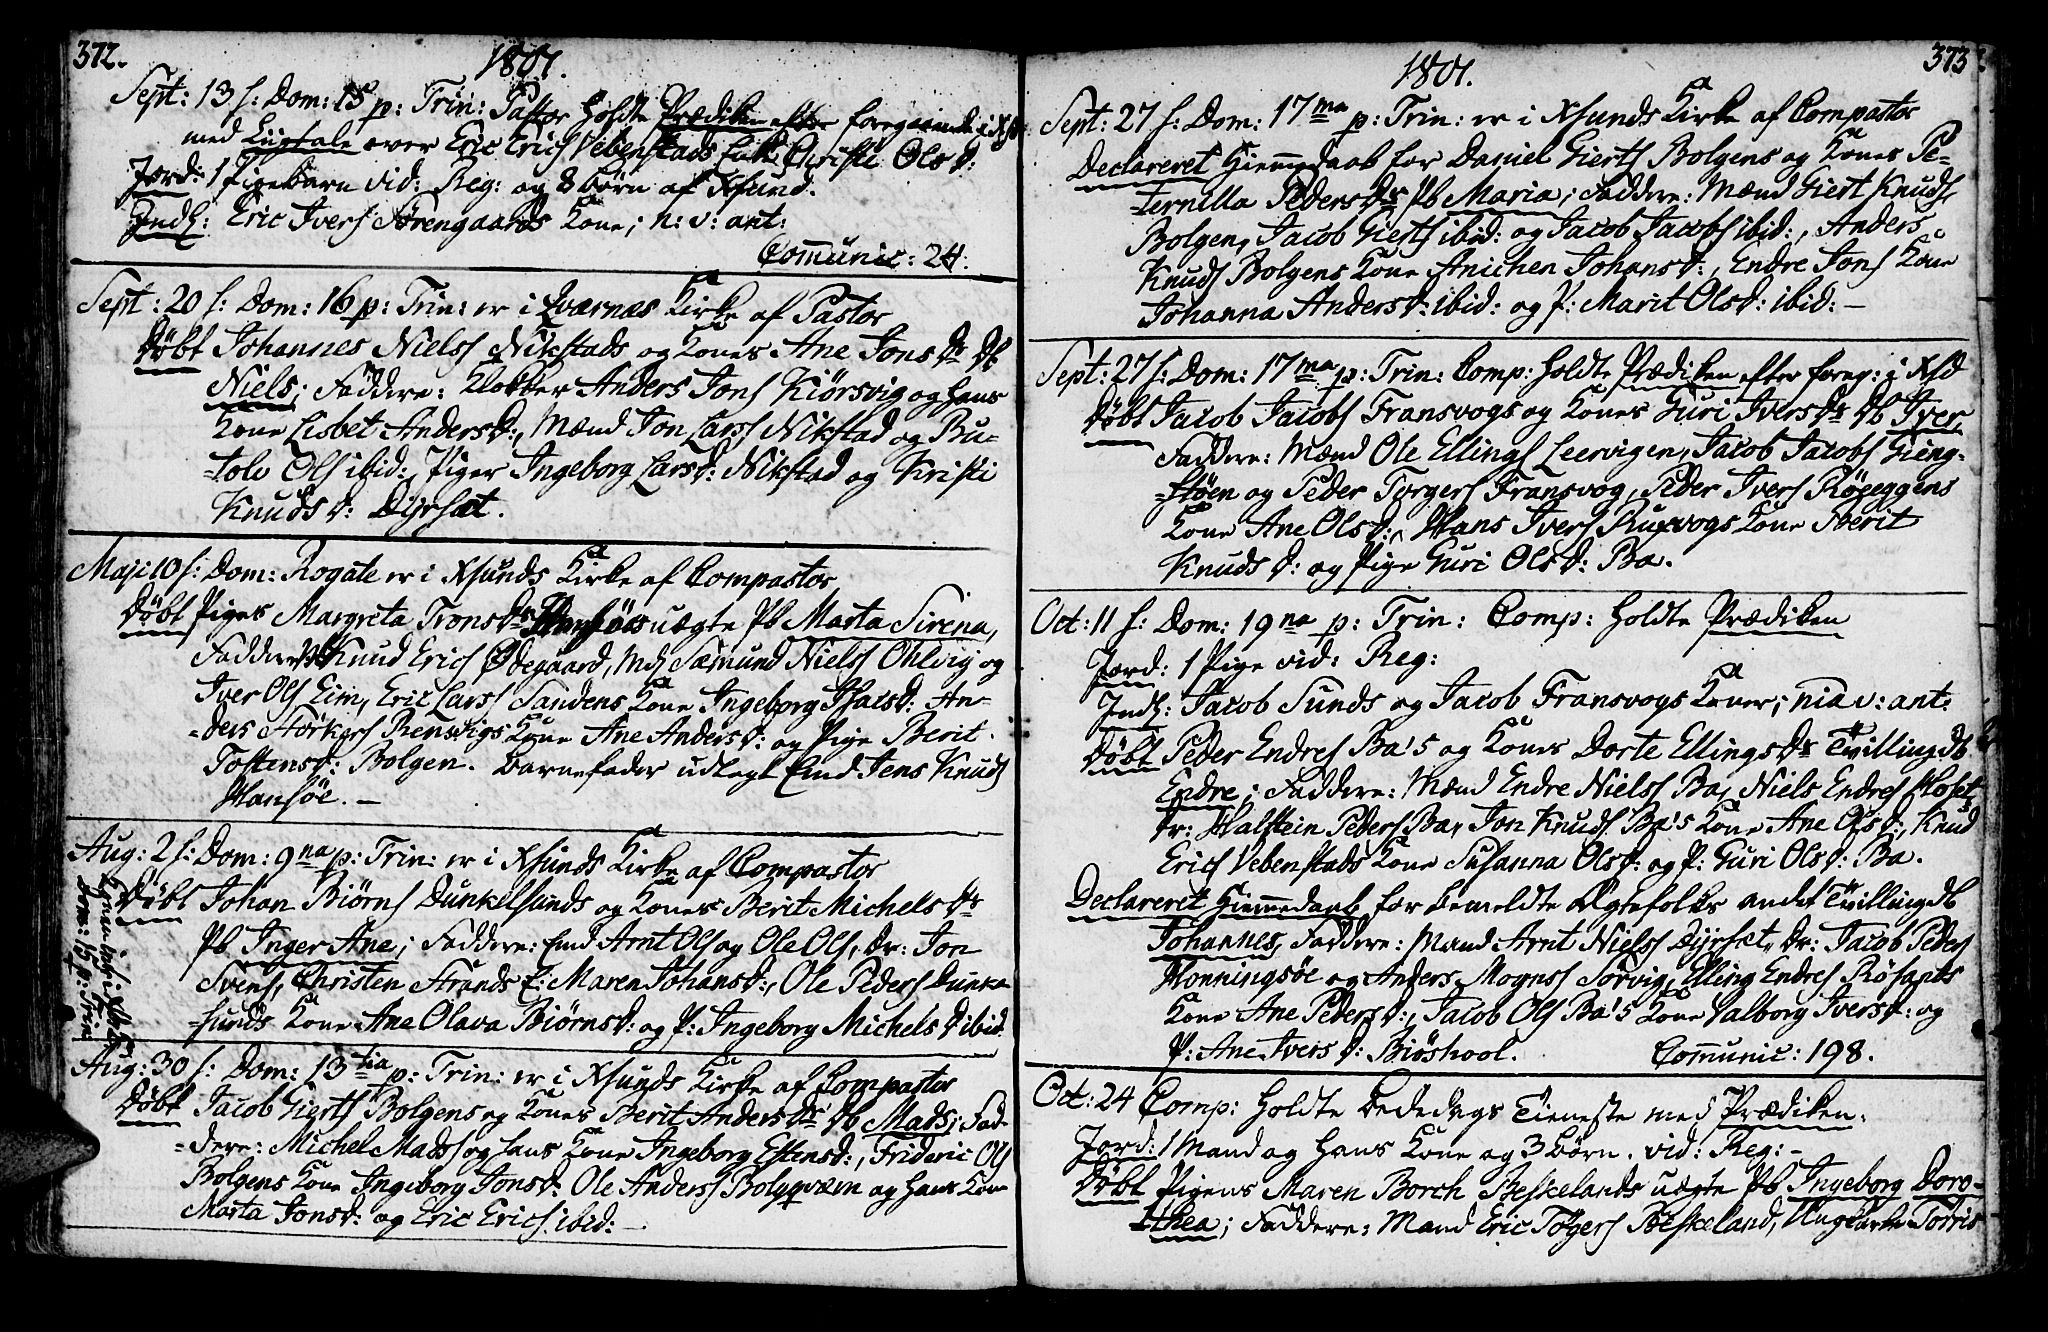 372.
1801.
Sept: 13 f: Dom: 15 p: Trin: Pastor holdte Prædiken efter foregaaende i Xsd
med Liigtale over Eric Erics Vebenstads Enke Christi Ols D:
Jord: 1 Pigebarn vid: Reg: og 8 børn af Xsund.
Indl: Eric Ivers Strengaards Kone; n: v: ant:
Comunic: 24:
Sept: 20 f: Dom: 16 p: Trin: er i Qværnæs Kirke af Pastor
Døbt Johannes Nielss Nikstads og Kones Ane Jons Ds Db
Niels; Faddere: Klokker Anders Jons Kiørsvig og hans
Kone Lisbet Anders D:, Mænd Jon Larss Nikstad og Bu-
-tole Ols ibid:, Piger Ingeborg Lars D: Nikstad og Kristi
Knuds D: Dyrsæt.
Maji 10 f: Dom: Rogate er i Xsunds Kirke af Compastor
Døbt Piges Margreta Trons Ds Hansøes uægte Pb Marta Sirena,
Faddere: Knud Erics Ødegaard, Md: Sæmund Nielss Ohlvig og
Iver Ols Eim, Eric Larss Sandens Kone Ingeborg Isacs D: An-
-ders Størkers Rensvigs Kone Ane Anders D: og Pige Berit
Tostens D: Bolgen. Barnefader udlagt Emd Jens Knuds
Hansøe. –
Aug: 2 f: Dom: 9na p: Trin: er i Xsunds Kirke af Compastor
Døbt Johan Biørns Dunkelsunds og Kones Berit Michels Ds
Pb Inger Ane; Faddere: Emd Arnt Ols og Ole Ols, Dr: Jon
Svens, Christen Strands E: Maren Johans D:, Ole Peders Dunke
-sunds Kone Ane Olava Biørns D: og P: Ingeborg Michels D ibid.
Kona intr: Xsd
Dom: 15 p: Trin:
Aug: 30 f: Dom: 13tia p: Trin: er i Xsunds Kirke af Compastor
Døbt Jacob Gierts Bolgens og Kones Berit Anders Ds Db Mads; Fad-
-dere: Michel Madss og hans Kone Ingeborg Estens D:, Frideric Ols
Bolgens Kone Ingeborg Jons D: Ole Anderss Bolgqværn og hans Kone
Marta Jons D: og Eric Erics ibid: –
373.
1801.
Sept: 27 f: Dom: 17ma p: Trin: er i Xsunds Kirke af Compastor
Declareret Hiemmedaab for Daniel Gierts Bolgens og Kones Pe-
-ternilla Peders Ds Pb Maria; Faddere: Mænd Giert Knuds
Bolgen, Jacob Gierts ibid: og Jacob Jacobs ibid:, Anders
Knuds Bolgens Kone Anichen Johans D:, Endre Jons Kone
Johanna Anders D: ibid: og P: Marit Ols D: ibid: –
Sept: 27 f: Dom: 17ma p: Trin: Comp: holdte Prædiken efter foreg: i Xsd
Døbt Jacob Jacobs Fransvogs og Kones Guri Ivers Ds Db Iver,
Faddere: Mænd Ole Ellings Leervigen, Jacob Jacobs Gieng-
-støen og Peder Torgers Fransvog, Peder Ivers Røgeggens
Kone Ane Ols D:, Hans Ivers Kuxvogs Kone Berit
Knuds D: og Pige Guri Ols D: Ba.
Oct: 11 f: Dom: 19na p: Trin: Comp: holdte Prædiken
Jord: 1 Pige vid: Reg:
Indl: Jacob Sunds og Jacob Fransvogs Koner; nia v: ant:
Døbt Peder Endres Ba's og Kones Dorte Ellings Ds Tvilling Db
Endre; Faddere: Mænd Endre Nielss Ba, Niels Endres Moset,
Dr: Halstein Peders Ba, Jon Knuds Ba's Kone Ane Ols D:, Knud
Erics Vebenstads Kone Susanna Ols D: og P: Guri Ols D: Ba.
Declareret Hiemmedaab for bemeldte Ægtefolks andet Tvilling Db
Johannes, Faddere: Mand Arnt Nielss Dyrsæt, Dr: Jacob Peders
Honningsøe og Anders Mognss Sørvig, Elling Endres Røsands
Kone Ane Peders D:, Jacob Ols Ba's Kone Valborg Ivers D: og
P: Ane Ivers D: Biøshool. Comunic: 198.
Oct: 24 Comp: holdte Bededags Tieneste med Prædiken.
Jord: 1 Mand og hans Kone og 3 børn. vid: Reg: –
Døbt Pigens Maren Borch Beskelands uægte Pb Ingeborg Doro-
-thea; Faddere: Mand Eric Tøgers Beskeland, Ungkarle Torris